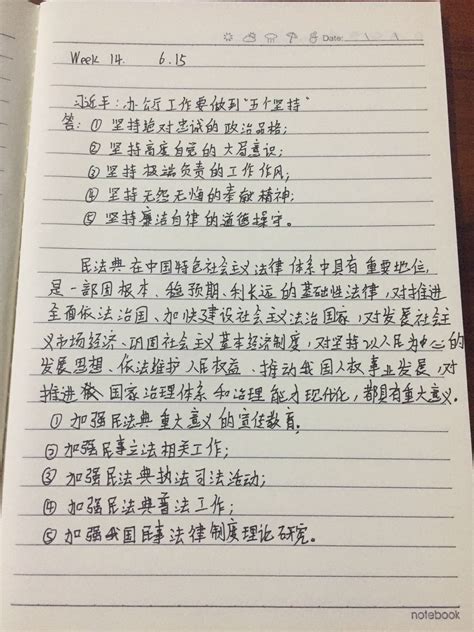 Date:
Week 14. 6.15
习近平:办公厅工作要做到"五个坚持"
答:① 坚持绝对忠诚的政治品格;
② 坚持高度自觉的大局意识;
③ 坚持极端负责的工作作风;
④ 坚持无怨无悔的奉献精神;
⑤ 坚持廉洁自律的道德操守。
民法典在中国特色社会主义法律体系中具有重要地位,
是一部固根本、稳预期、利长远的基础性法律,对推进
全面依法治国、加快建设社会主义法治国家,对发展社会主
义市场经济、巩固社会主义基本经济制度,对坚持以人民为中心的
发展思想、依法维护人民权益、推动我国人权事业发展,对
推进国家治理体系和治理能力现代化,都具有重大意义。
① 加强民法典重大意义的宣传教育;
② 加强民事立法相关工作;
③ 加强民法典执法司法活动;
④ 加强民法典普法工作;
⑤ 加强我国民事法律制度理论研究。
notebook